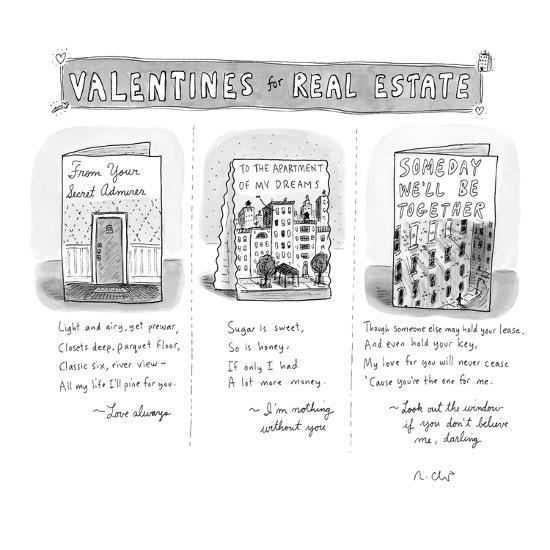 VALENTINES for REAL ESTATE
From Your
Secret Admirer
Light and airy, yet prewar,
Closets deep, parquet floor,
Classic six, river view—
All my life I'll pine for you.
~ Love always
TO THE APARTMENT
OF MY DREAMS
Sugar is sweet,
So is honey.
If only I had
A lot more money.
~ I'm nothing
without you
SOMEDAY
WE'LL BE
TOGETHER
Though someone else may hold your lease,
And even hold your key,
My love for you will never cease
'Cause you're the one for me.
~ Look out the window
if you don't believe
me, darling
R. Chst